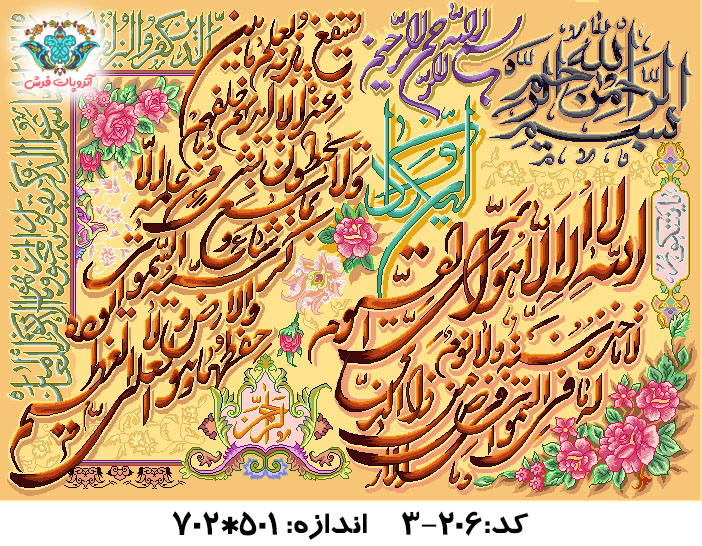 بسم الله الرحمن الرحیم
بسم الله الرحمن الرحیم
وان یکاد
الله لا اله الا هو الحی القیوم
لا تاخذه سنة ولا نوم
له ما فی السموات وما فی الارض من ذا الذی
یشفع عنده الا باذنه یعلم ما بین ایدیهم وما خلفهم
ولا یحیطون بشیء من علمه الا
بما شاء وسع کرسیه السموات
والارض ولا یوده
حفظهما وهو العلی العظیم
الرحمن
آتروپات فرش
کد:۲۰۶-۳ اندازه: ۵۰۱*۷۰۲